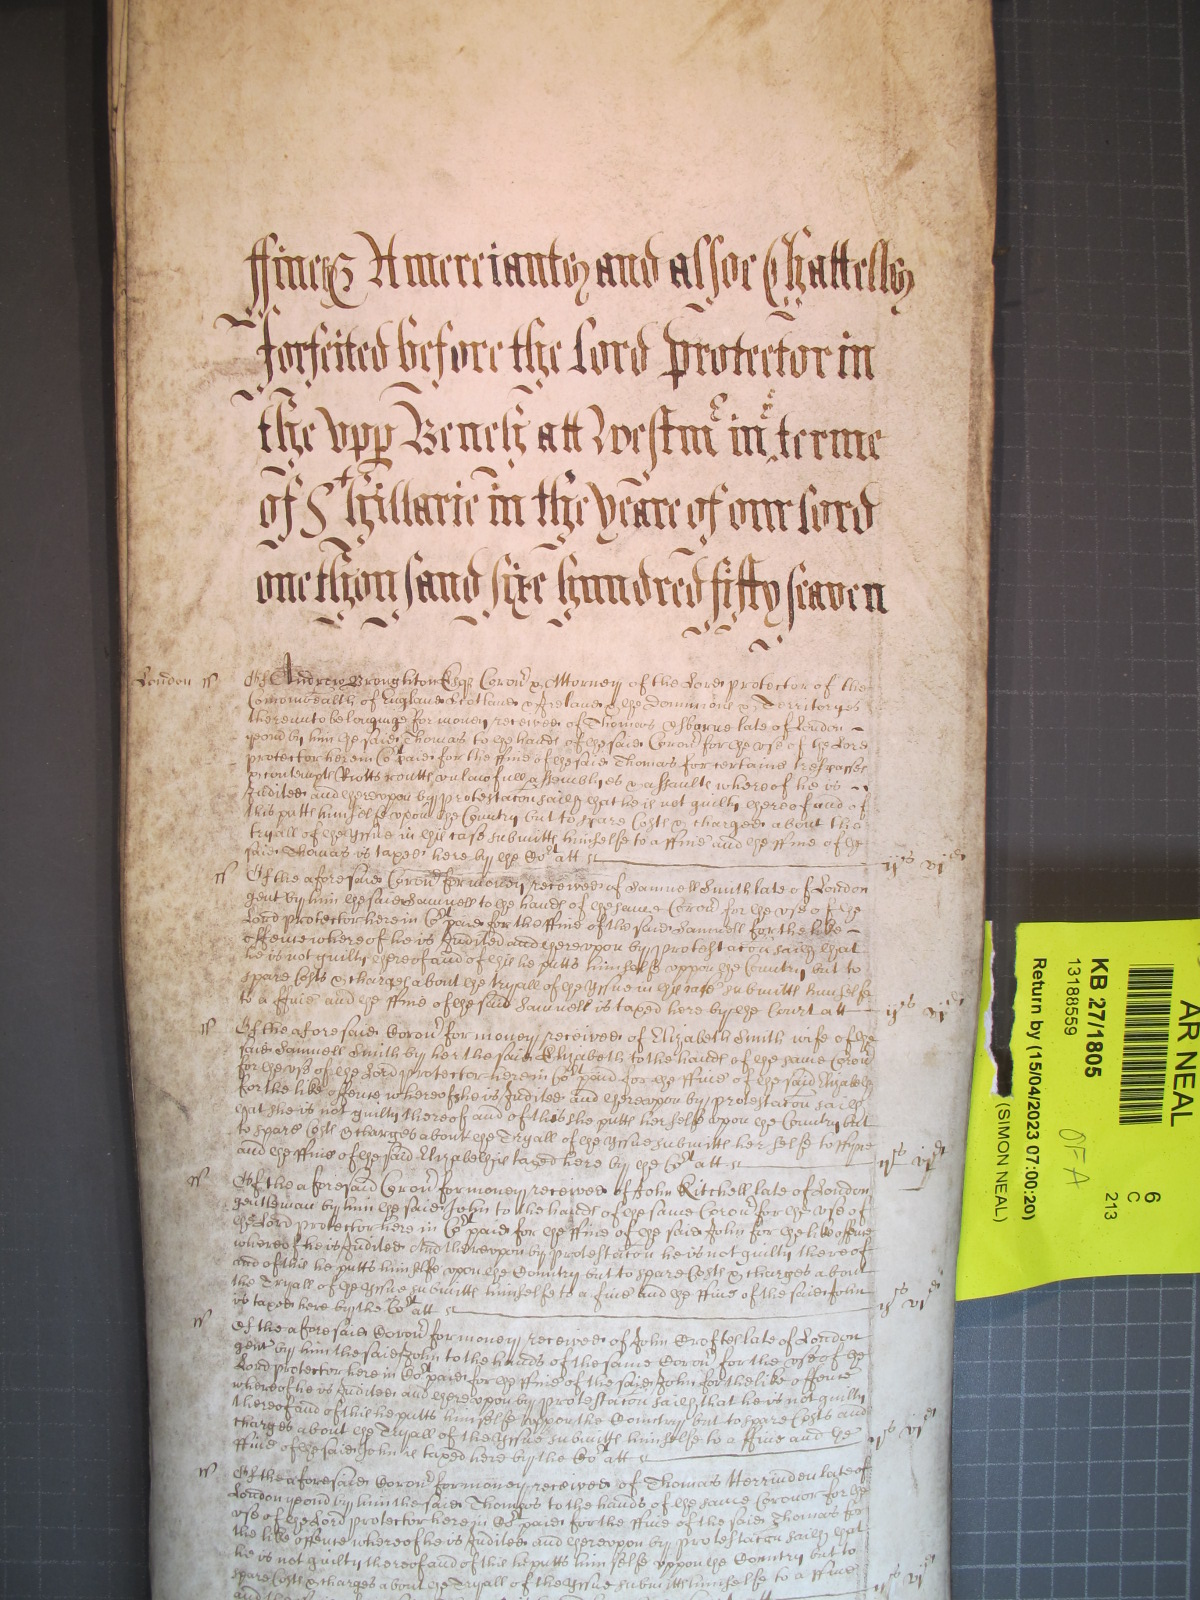 ffines Amerciamts and alsoe Chattells
forfeited before the Lord protector in
the vpp Bench att Westm in terme
of St hillarie in the yeare of our Lord
one thousand sixe hundred fifty seaven
London ss Of Andrew Broughton Esqr Coron & Attorney of the Lord protector of the
Comonwealth of England Scotland & Ireland & the Dominions & Territoryes
thereunto belonginge for money received of Thomas Osborne late of London
yeom by him the said Thomas to the hands of the said Coron for the vse of the Lord
protector here in Cort paid for the ffine of the said Thomas for certaine trespasses
& contempts Riotts routts vnlawfull assemblyes & assaults whereof he is
Indited and thereupon by protestacon saith that he is not guilty thereof and of
this putts himselfe vpon the Country but to spare Costs & charges about the
tryall of the Issue in this case submitts himselfe to a ffine and the ffine of the
said Thomas is taxed here by the Cort att ijs vjd
ss Of the aforesaid Coron for money received of Samuell Smith late of London
gent by him the said Samuell to the hands of the same Coron for the vse of the
Lord protector here in Cort paid for the ffine of the said Samuell for the like
offence whereof he is Indited and thereupon by protestacon saith that
he is not guilty thereof and of this he putts himselfe vppon the Country but to
spare Costs & charges about the tryall of the Issue in this case submitts himselfe
to a ffine and the ffine of the said Samuell is taxed here by the Court att ijs vjd
ss Of the aforesaid Coron for money received of Elizabeth Smith wife of the
said Samuell Smith by her the said Elizabeth to the hands of the same Coron
for the vse of the Lord protector here in Cort paid for the ffine of the said Elizabeth
for the like offence whereof she is Indited and thereupon by protestacon saith
that she is not guilty thereof and of this she putts herselfe vpon the Country but
to spare Costs & charges about the Tryall of the Issue submitts her selfe to ffyne
and the ffine of the said Elizabeth is taxed here by the Cort att ijs vjd
ss Of the aforesaid Coron for money received of John Kitchell late of London
gentleman by him the said John to the hands of the same Coron for the vse of
the Lord protector here in Cort paid for the ffine of the said John for the like offence
whereof he is Indited And thereupon by protestacon he is not guilty thereof
and of this he putts himselfe vpon the Country but to spare Costs & charges about
the Tryall of the Issue submitts himselfe to a ffine and the ffine of the said John
is taxed here by the Cort att ijs vjd
ss Of the aforesaid Coron for money received of John Croftes late of London
gent by him the said John to the hands of the same Coron for the vse of the
Lord protector here in Cort paid for the ffine of the said John for the like offence
whereof he is Indited and thereupon by protestacon saith that he is not guilty
thereof and of this he putts himselfe vppon the Country but to spare Costs and
charges about the Tryall of the Issue submitts himselfe to a ffine and the
ffine of the said John is taxed here by the Cort att ijs vjd
ss Of the aforesaid Coron for money received of Thomas Herrinden late of
London yeom by him the said Thomas to the hands of the same Coronor for the
vse of the Lord protector here in Cort paid for the ffine of the said Thomas for
the like offence whereof he is Indited and thereupon by protestacon saith that
he is not guilty thereof and of this he putts him selfe vppon the Country but to
spare Costs & charges about the Tryall of the Issue submitts himselfe to a ffine
ijs vjd
AR NEAL
KB 27/1805
13188559
Return by (15/04/2023 07:00:20)
(SIMON NEAL)
OFA
6
C
213